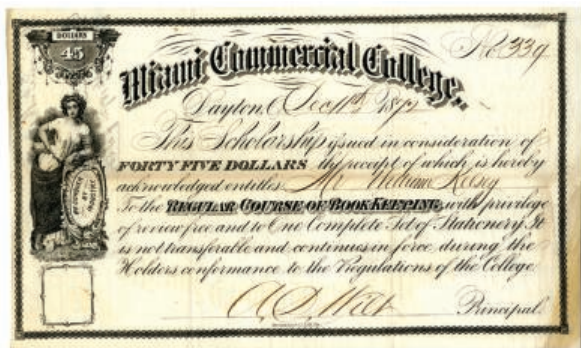 DOLLARS
45
No 339
Miami Commercial College,
Dayton, O. Dec 11th 1872
This Scholarship issued in consideration of
FORTY FIVE DOLLARS the receipt of which is hereby
acknowledged entitles Mr William Kelsey
To the REGULAR COURSE OF BOOK KEEPING, with privilege
of review free and to One Complete Set of Stationery. It
is not transferable and continues in force during the
Holders conformance to the Regulations of the College.
Principal.